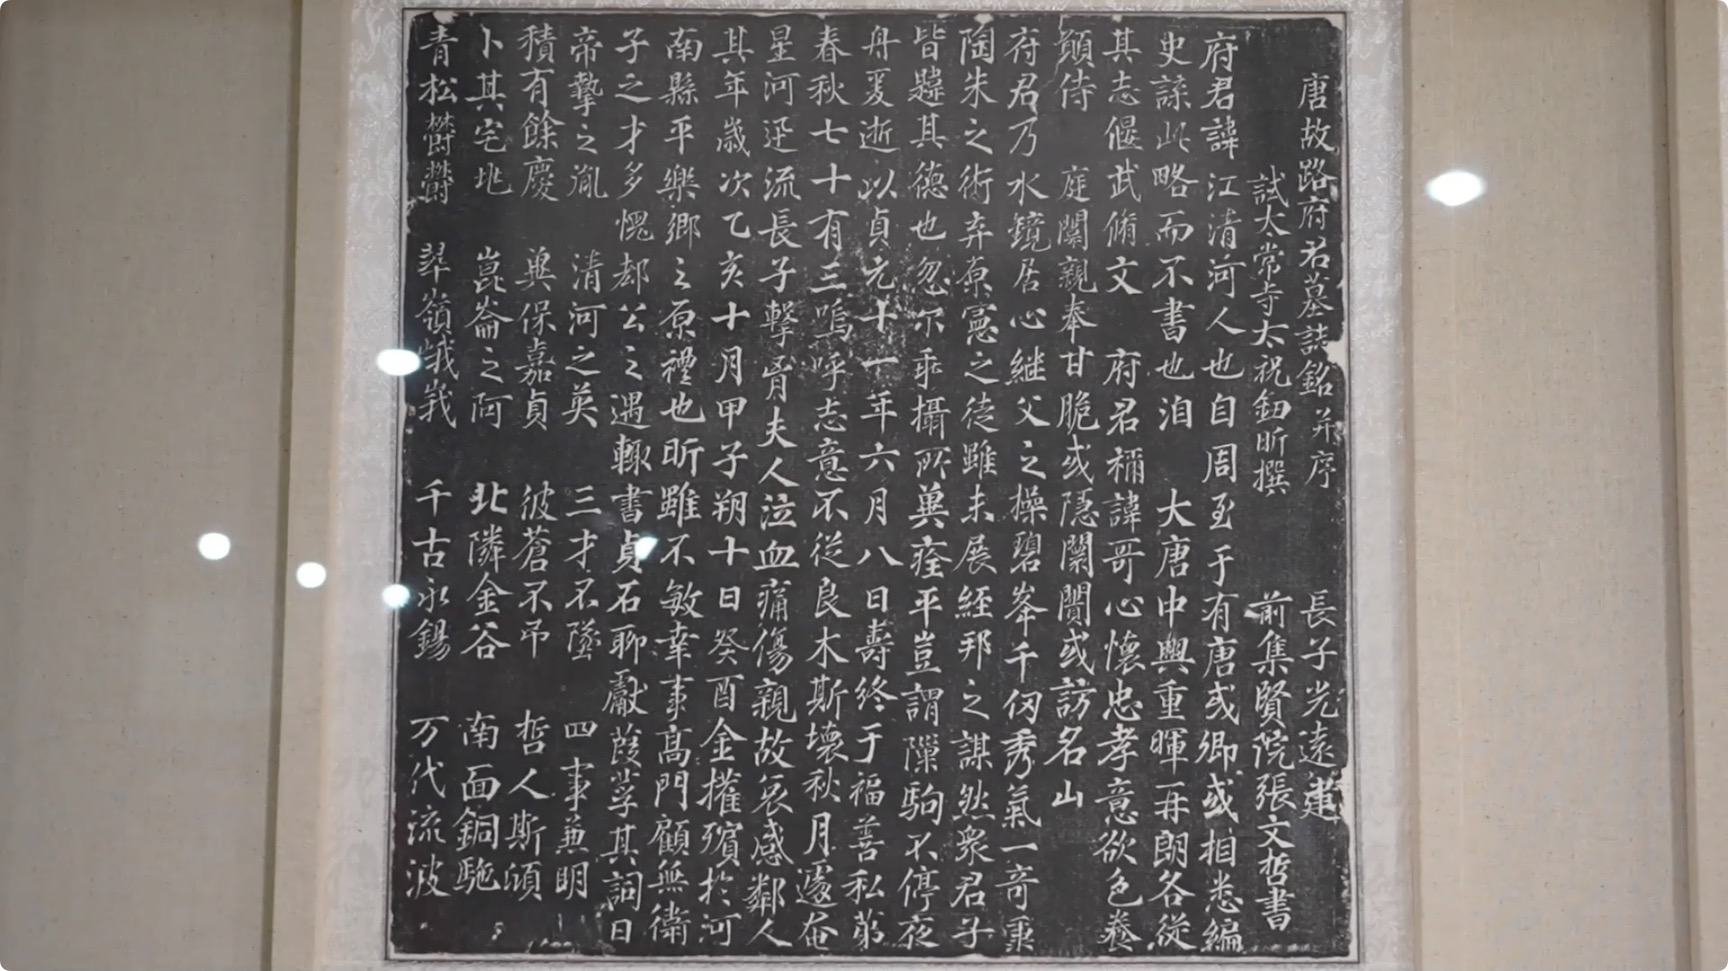 唐故路府君墓誌銘并序 長子光遠建
試太常寺太祝鈕昕撰 前集賢院張文哲書
府君諱江清河人也自周至于有唐或卿或相悉編
史諜此略而不書也洎 大唐中興重暉再朗各從
其志偃武脩文 府君禰諱哥心懷忠孝意欲色養
顛侍 庭闈親奉甘脆或隱闤闠或訪名山
府君乃水鏡居心継父之操碧峯千仞秀氣一奇秉
陶朱之術弃原憲之徒雖未展経邦之謀然衆君子
皆韙其德也忽尔乖攝所冀痊平豈謂隟駒不停夜
舟爰逝以貞元十一年六月八日壽終于福善私第
春秋七十有三嗚呼志意不従良木斯壞秋月邊奄
星河迅流長子擊胷夫人泣血痛傷親故哀感鄰人
其年歲次乙亥十月甲子朔十日癸酉金攉殯扵河
南縣平樂鄉之原禮也昕雖不敏幸事高門顧無衛
子之才多愧郄公之遇輙書貞石聊獻葭莩其詞曰
帝摯之胤 清河之英 三才不墜 四事兼明
積有餘慶 兾保嘉貞 彼蒼不吊 哲人斯傾
卜其宅地 崑崙之阿 北隣金谷 南面銅駞
青松欝欝 翠嶺峩峩 千古永錫 万代流波